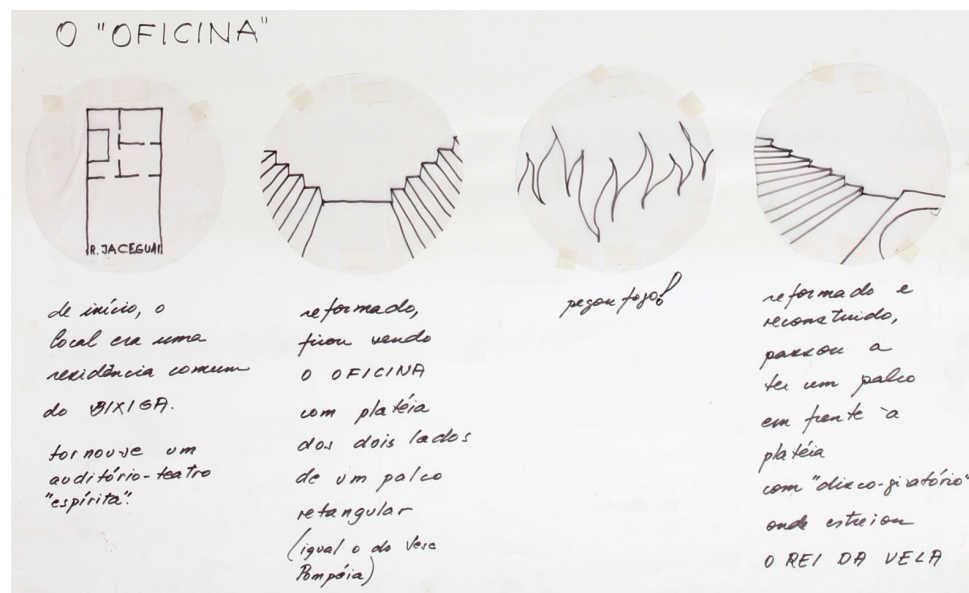 O "OFICINA"
R. JACEGUAI
de início, o
local era uma
residência comum
do BIXIGA.
tornou-se um
auditório-teatro
"espírita".
reformado,
ficou sendo
O OFICINA
com platéia
dos dois lados
de um palco
retangular
(igual o do Sesc
Pompéia)
pegou fogo!
reformado e
reconstruido,
passou a
ter um palco
em frente à
platéia
com "disco-giratório"
onde estreiou
O REI DA VELA